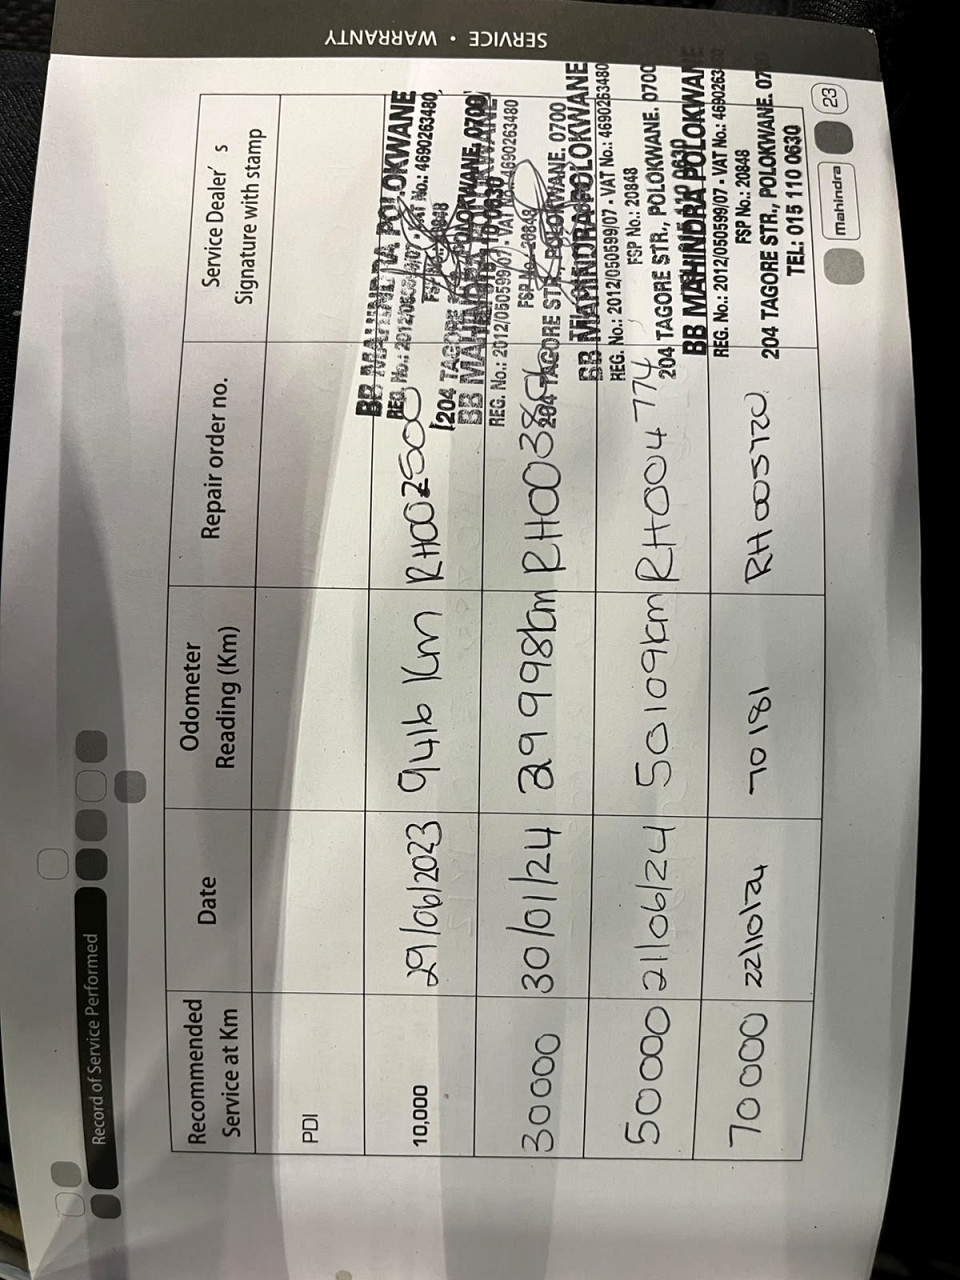 SERVICE • WARRANTY
Record of Service Performed
Recommended Service at Km Date Odometer Reading (Km) Repair order no. Service Dealer's Signature with stamp
PDI
10,000 29/06/2023 9416 Km
30000 30/01/24 29998km
50000 21/06/24 50109km RH004774
70000 22/10/24 70181 RH005720
BB MAHINDRA POLOKWANE
REG. No.: 2012/050599/07 - VAT No.: 4690263480
204 TAGORE
BB MAHINDRA POLOKWANE
REG. No.: 2012/050599/07 - VAT No.: 4690263480
FSP No.: 20848
204 TAGORE STR., POLOKWANE. 0700
BB MAHINDRA POLOKWANE
REG. No.: 2012/050599/07 - VAT No.: 4690263480
FSP No.: 20848
204 TAGORE STR., POLOKWANE. 0700
BB MAHINDRA POLOKWANE
REG. No.: 2012/050599/07 - VAT No.: 4690263
FSP No.: 20848
204 TAGORE STR., POLOKWANE. 0700
TEL: 015 110 0630
mahindra
23